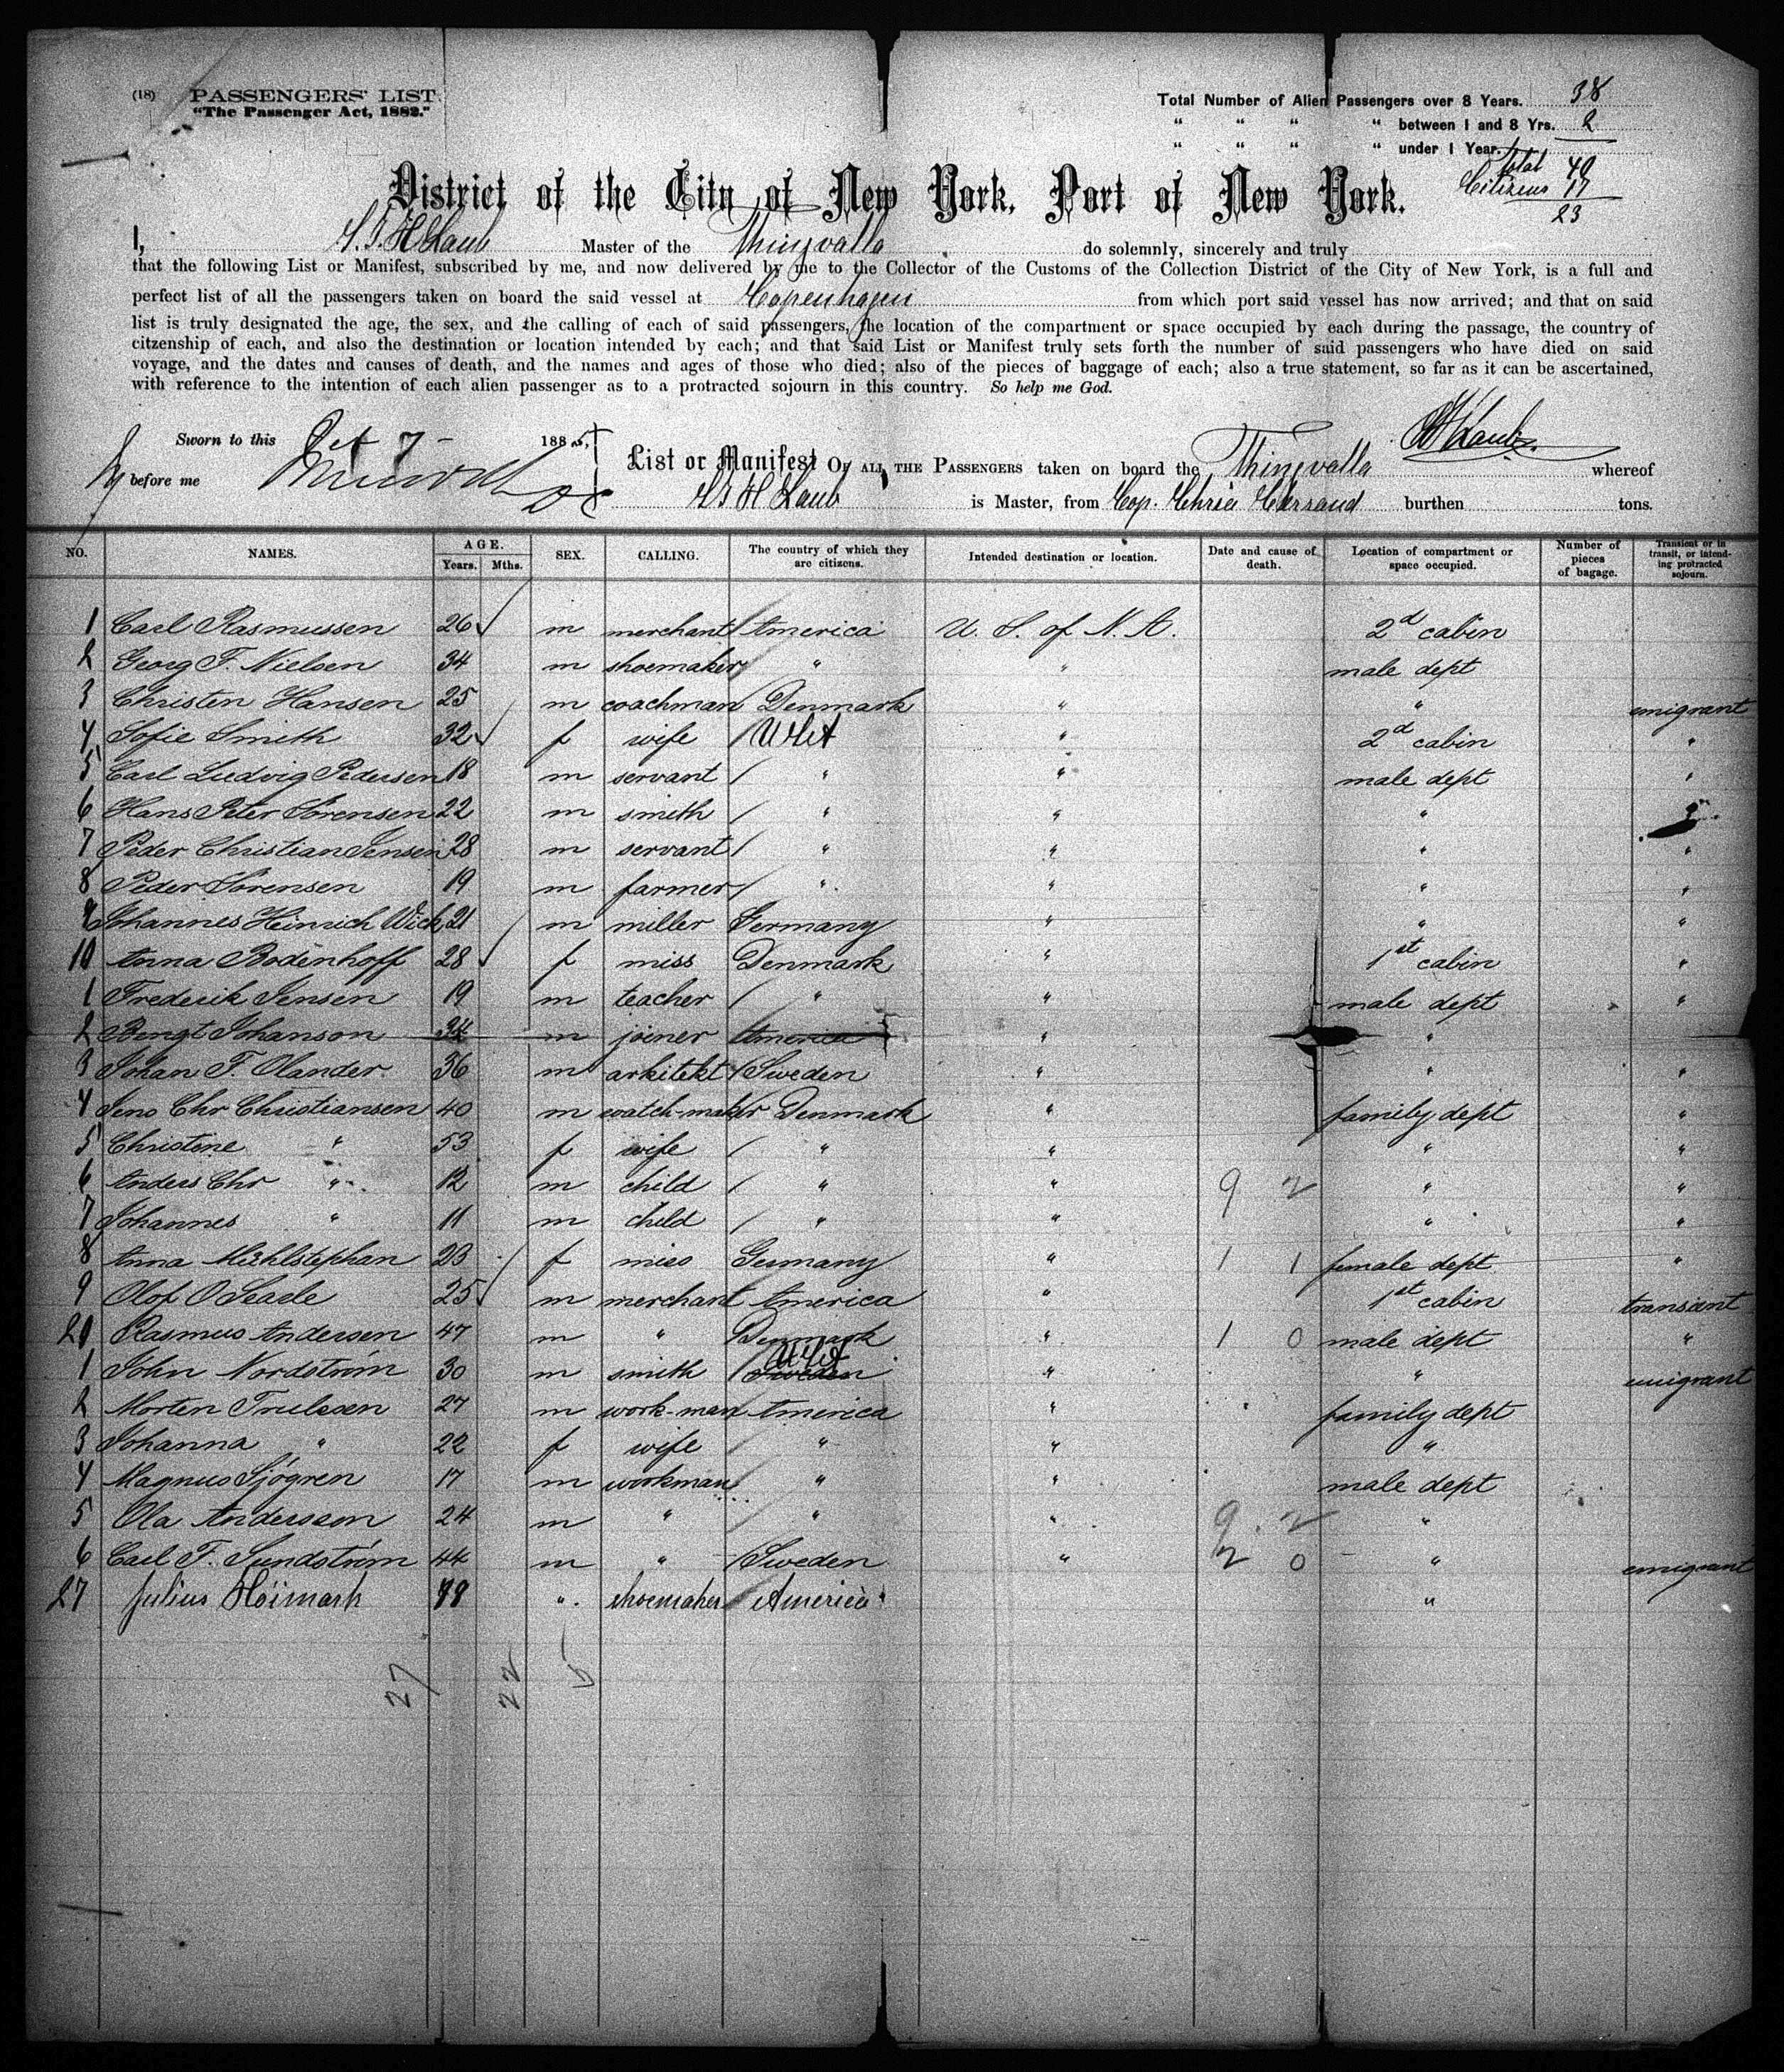 (18) PASSENGERS' LIST.
"The Passenger Act, 1882."
Total Number of Alien Passengers over 8 Years. 38
" " " " between 1 and 8 Yrs. 2
" " " " under 1 Year.
Total 40
Citizens 17
23
District of the City of New York, Port of New York.
I, S. T. H. Laub Master of the Thingvalla do solemnly, sincerely and truly
that the following List or Manifest, subscribed by me, and now delivered by me to the Collector of the Customs of the Collection District of the City of New York, is a full and
perfect list of all the passengers taken on board the said vessel at Copenhagen from which port said vessel has now arrived; and that on said
list is truly designated the age, the sex, and the calling of each of said passengers, the location of the compartment or space occupied by each during the passage, the country of
citzenship of each, and also the destination or location intended by each; and that said List or Manifest truly sets forth the number of said passengers who have died on said
voyage, and the dates and causes of death, and the names and ages of those who died; also of the pieces of baggage of each; also a true statement, so far as it can be ascertained,
with reference to the intention of each alien passenger as to a protracted sojourn in this country. So help me God.
Laub
Sworn to this Oct 7 1885,
before me
List or Manifest OF ALL THE PASSENGERS taken on board the Thingvalla whereof
S T H Laub is Master, from Cop. burthen tons.
NO. NAMES. AGE. Years. Mths. SEX. CALLING. The country of which they are citizens. Intended destination or location. Date and cause of death. Location of compartment or space occupied. Number of pieces of bagage. Transient or in transit, or intending protracted sojourn.
1 Carl Rasmussen 26 m merchant America U. S. of N. A. 2d cabin
2 Georg F. Nielsen 34 m shoemaker " " male dept
3 Christen Hansen 25 m coachman Denmark " " emigrant
4 Sofie Smith 32 f wife USA " 2d cabin "
5 Carl Ludvig Pedersen 18 m servant " " male dept "
6 Hans Peter Sörensen 22 m smith " " " "
7 Peder Christian Jensen 28 m servant " " " "
8 Peder Sorensen 19 m farmer " " " "
9 Johannes Heinrich Wick 21 m miller Germany " " "
10 Anna Bodenhoff 28 f miss Denmark " 1st cabin "
1 Frederik Jensen 19 m teacher " " male dept "
2 Bengt Johanson 34 m joiner America " "
3 Johan F. Olander 36 m arkitekt Sweden " " "
4 Jens Chr Christiansen 40 m watch-maker Denmark " family dept "
5 Christine " 53 f wife " " " "
6 Anders Chr " 12 m child " " 9 2 " "
7 Johannes " 11 m child " " " "
8 Anna Mühlstephan 23 f miss Germany " 1 1 female dept "
9 Olof O Searle 25 m merchant America " 1st cabin transient
20 Rasmus Andersen 47 m " Denmark " 1 0 male dept "
1 John Nordström 30 m smith Sweden USA " " emigrant
2 Morten Trulssen 27 m work-man America " family dept
3 Johanna " 22 f wife " " "
4 Magnus Sjögren 17 m workman " " male dept
5 Ola Andersson 24 m " " " 9 2 "
6 Carl F. Sundström 44 m " Sweden " 2 0 " emigrant
27 Julius Höimark 19 " shoemaker America " "
27 22 5